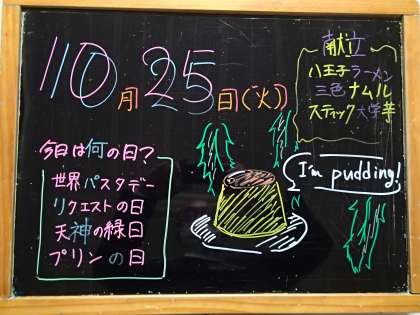 10月25日(火)
献立
八王子ラーメン
三色ナムル
スティック大学芋
今日は何の日？
世界パスタデー
リクエストの日
天神の縁日
プリンの日
I'm pudding!